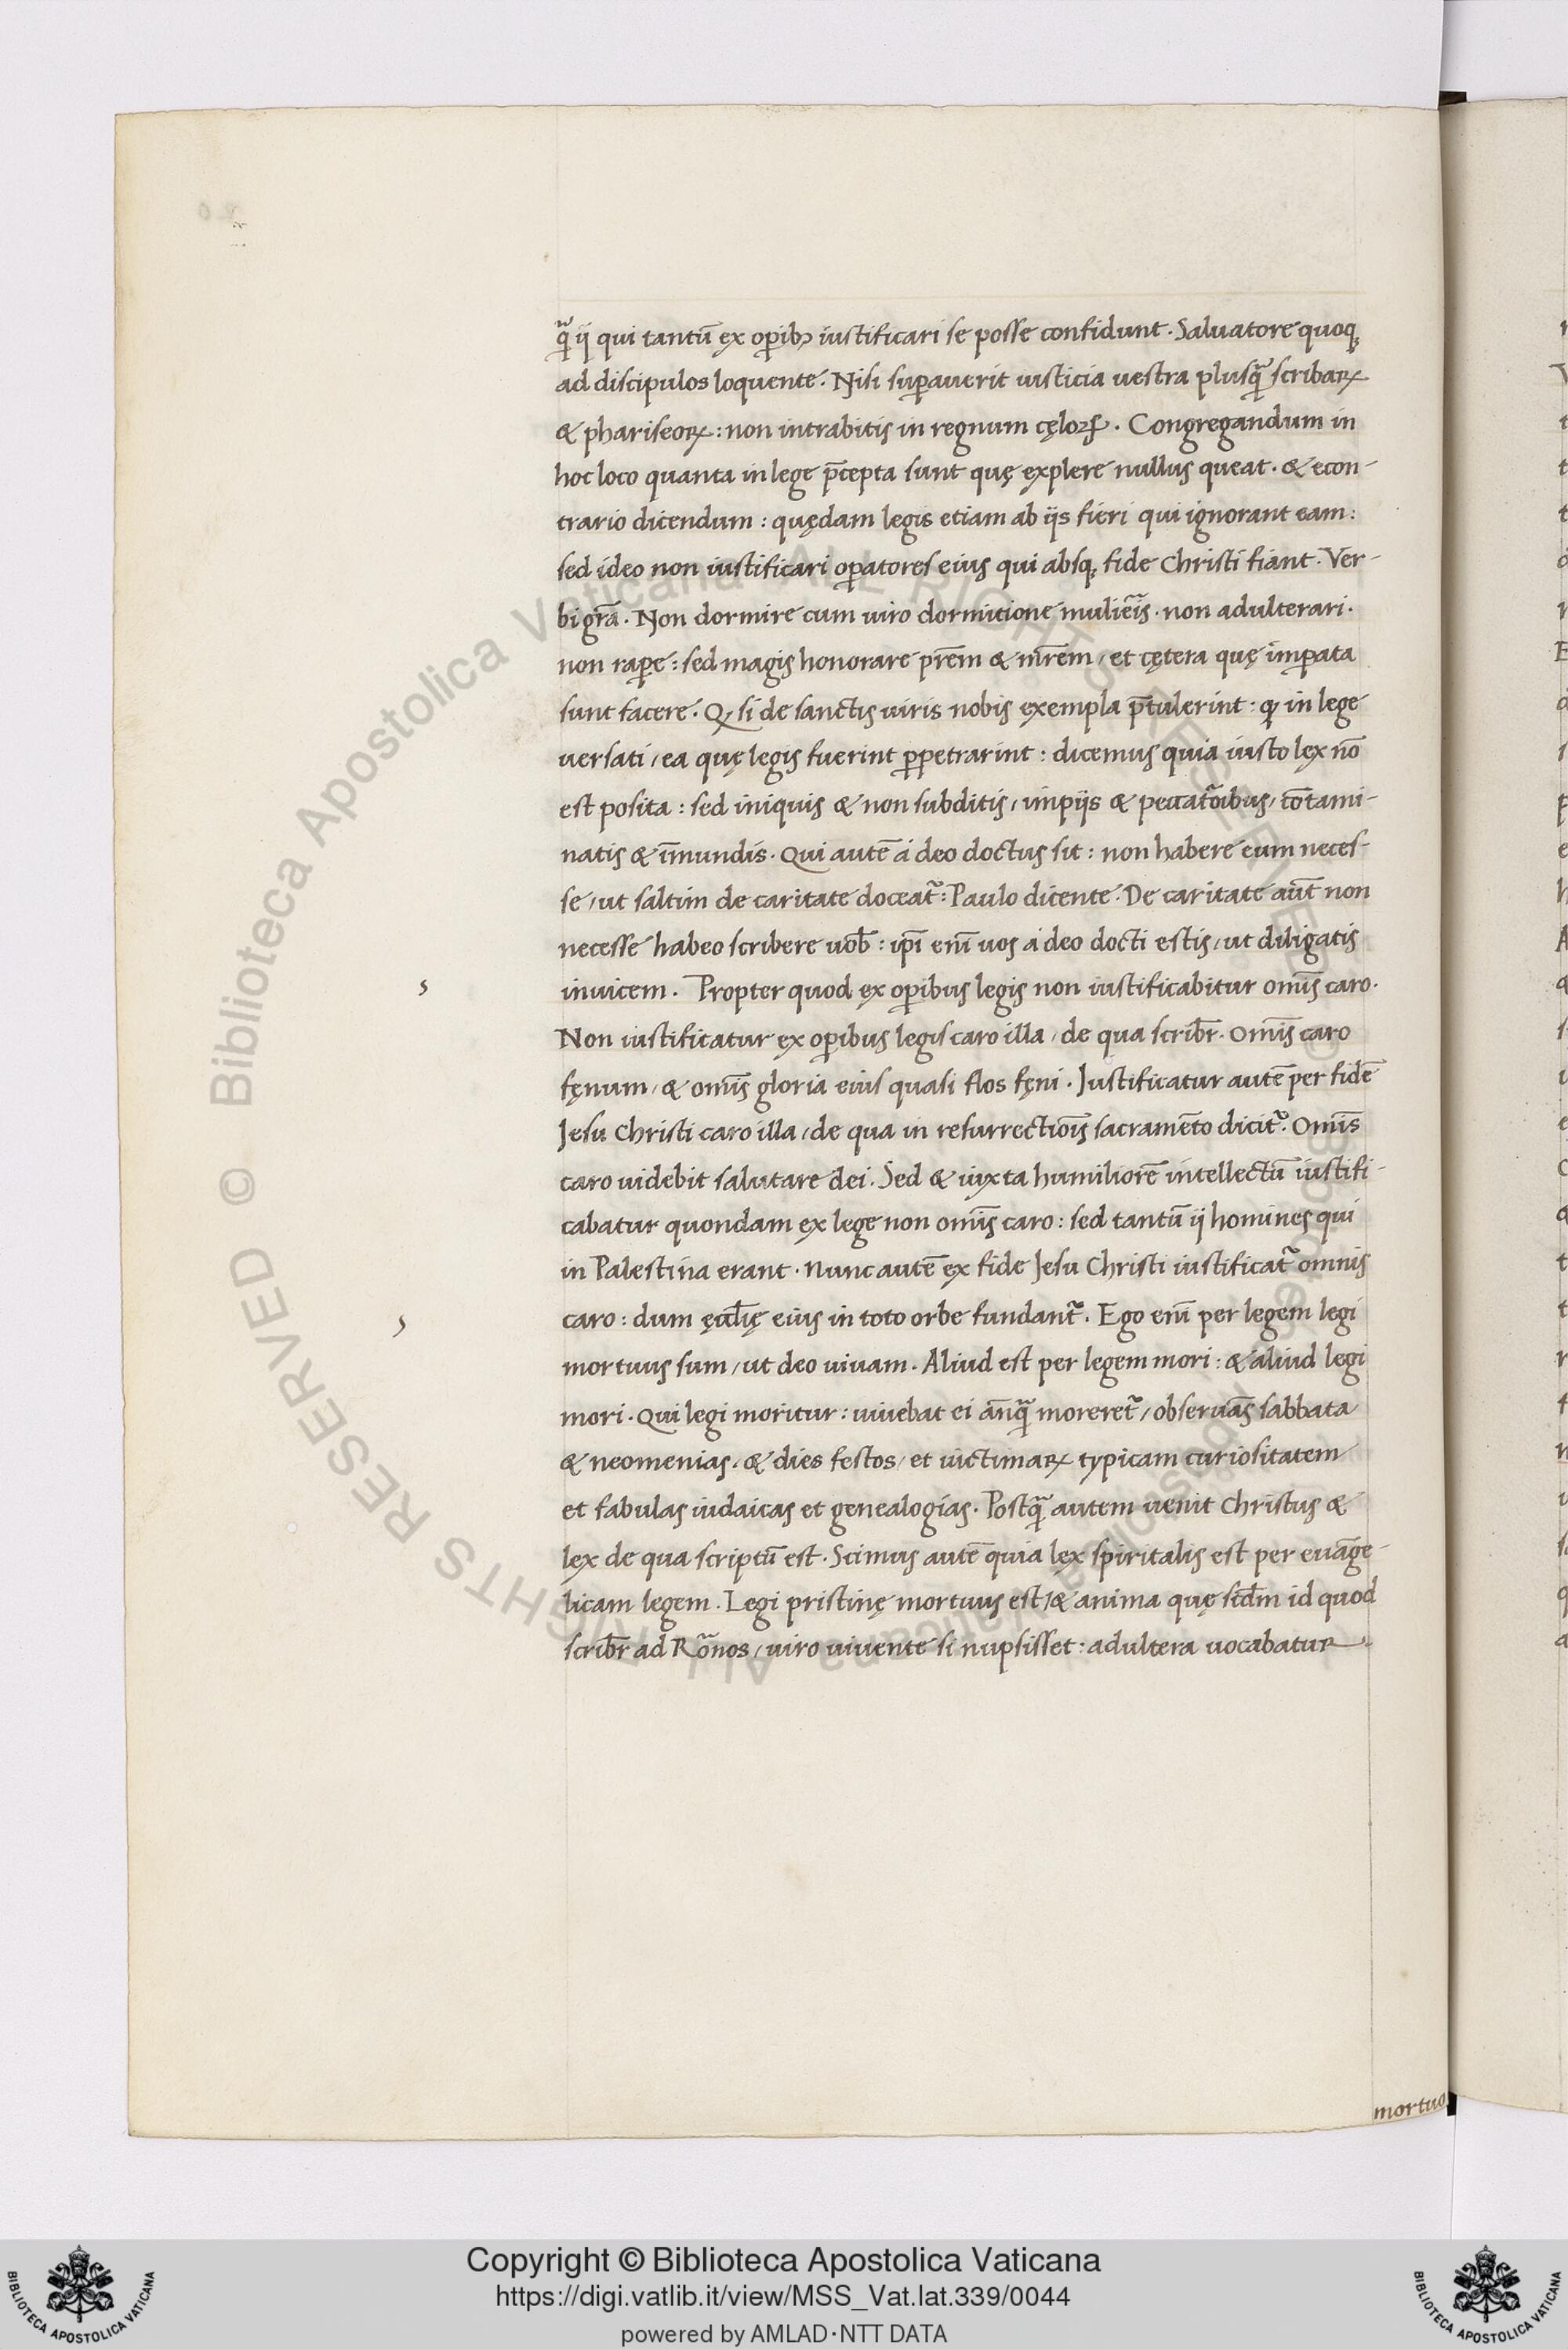 q̃ ij qui tantū ex oꝑibꝫ iustificari se posse confidunt. Saluatore quoqꝫ
ad discipulos loquente. Nisi suꝑauerit iusticia uestra plusq̃ scribaꝝ
& phariseoꝝ: non intrabitis in regnum cęloꝝ. Congregandum in
hoc loco quanta in lege p̄cepta sunt quę explere nullus queat. & econ-
trario dicendum: quędam legis etiam ab ijs fieri qui ignorant eam:
sed ideo non iustificari oꝑatores eius qui absqꝫ fide Christi fiant. Ver-
bi grā. Non dormire cum uiro dormitione mulieris. non adulterari.
non raꝑe: sed magis honorare prēm & mrēm, et cętera quę imꝑata
sunt facere. Ꝙ si de sanctis uiris nobis exempla p̄tulerint: ꝙ in lege
uersati, ea quę legis fuerint ꝑpetrarint: dicemus quia iusto lex nō
est posita: sed iniquis & non subditis, impijs & peccatoribus, cōtami-
natis & īmundis. Qui autē á deo doctus sit: non habere eum neces-
se, ut saltim de caritate doceat̃: Paulo dicente. De caritate aut̄ non
necesse habeo scribere uob̄: ip̄i eni̅ uos á deo docti estis, ut diligatis
inuicem. Propter quod ex oꝑibus legis non iustificabitur omīs caro.
Non iustificatur ex oꝑibus legis caro illa, de qua scribr̄. Omīs caro
fęnum, & omīs gloria eius quasi flos fęni. Justificatur autē per fidē
Jesu Christi caro illa, de qua in resurrectiōis sacramēto dicit̃. Omīs
caro uidebit salutare dei. Sed & iuxta humiliorē intellectū iustifi-
cabatur quondam ex lege non omīs caro: sed tantū ij homines qui
in Palestina erant. Nunc autē ex fide Jesu Christi iustificat̃ omnis
caro: dum ęcl̄ię eius in toto orbe fundant̃. Ego eni̅ per legem legi
mortuus sum, ut deo uiuam. Aliud est per legem mori: & aliud legi
mori. Qui legi moritur: uiuebat ei ānq̃ moreret̃, obseruās sabbata
& neomenias, & dies festos, et uictimaꝝ typicam curiositatem
et fabulas iudaicas et genealogías. Postq̃ autem uenit Christus &
lex de qua scriptū est. Scimus autē quia lex spiritalis est per euāge-
licam legem. Legi pristinę mortuus est, & anima quę scdm̄ id quod
scribr̄ ad Rōnos, uiro uiuente si nupsisset: adultera uocabatur.
mortuo
Copyright © Biblioteca Apostolica Vaticana
https://digi.vatlib.it/view/MSS_Vat.lat.339/0044
powered by AMLAD·NTT DATA